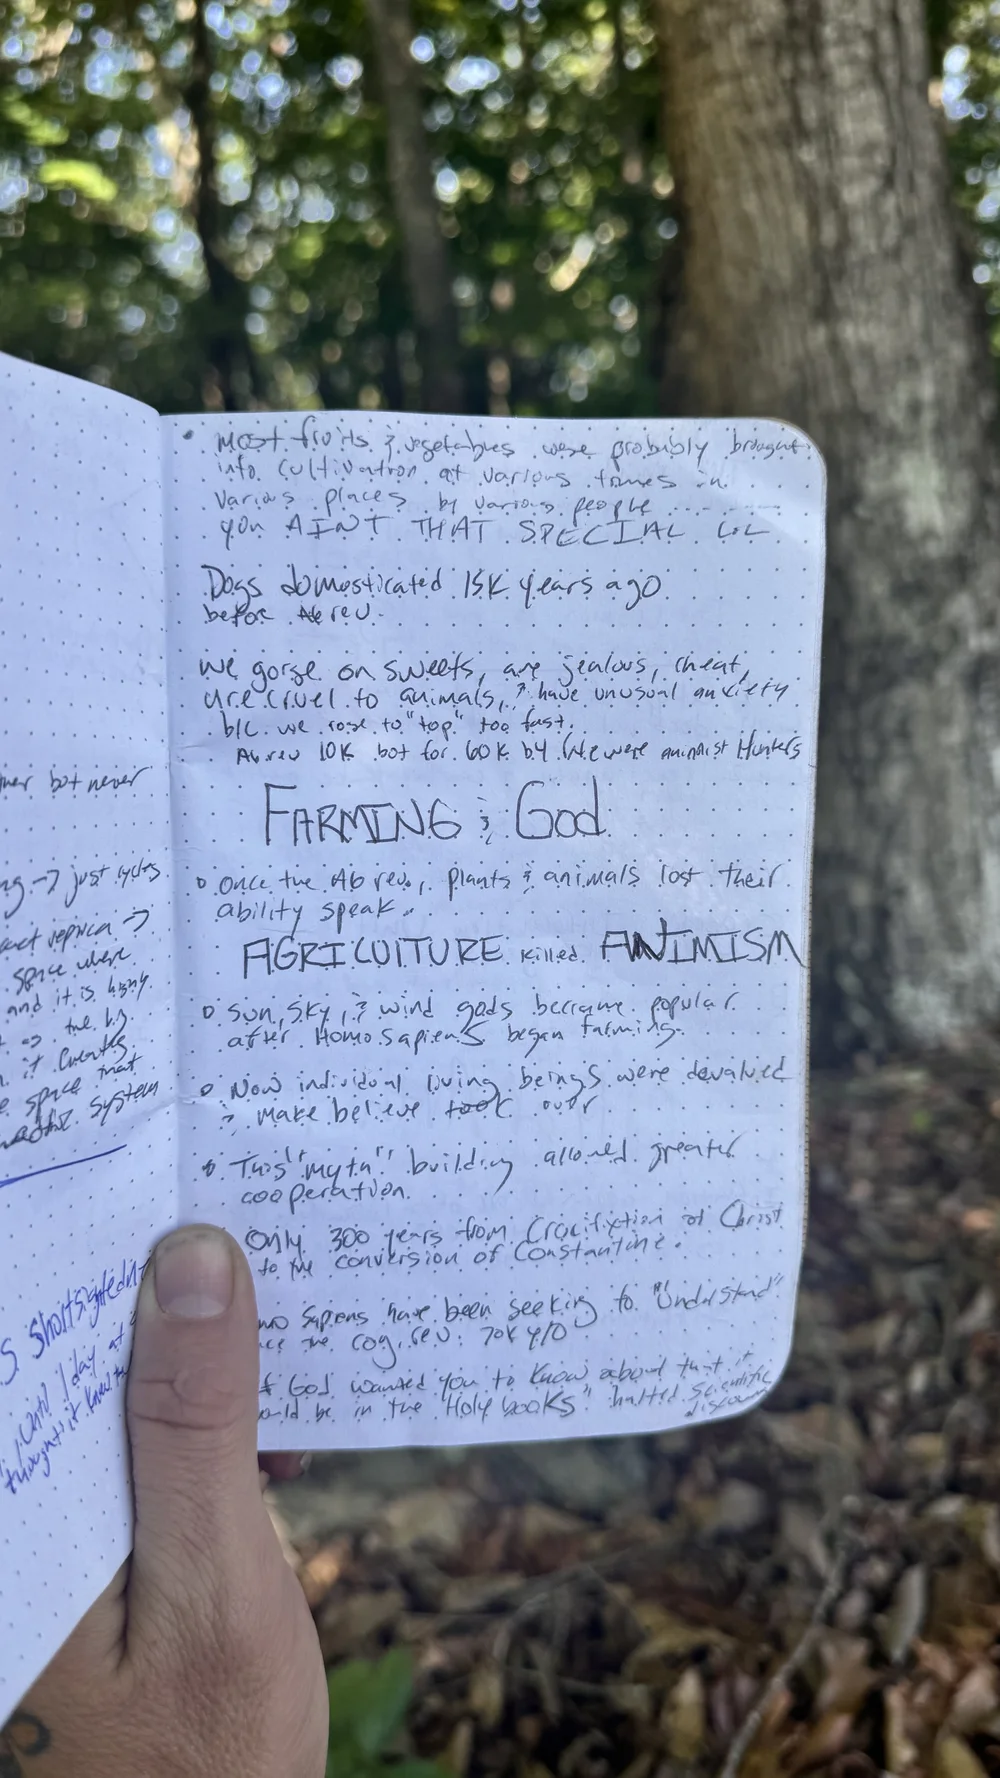 mer but never
ng → just cycles
exact replica →
space where
and it is
→ the
it creates
space that
system
S Shortsightedn
until 1 day at
thought it knew th
• Most fruits & vegetables were probably brought
into cultivation at various times in
various places by various people ........
you AINT THAT SPECIAL LOL
Dogs domesticated 15K years ago
before Ab rev.
We gorge on sweets, are jealous, cheat,
are cruel to animals, & have unusual anxiety
b/c we rose to "top" too fast.
Ab. rev 10K but for 60K b4 we were animist Hunters
FARMING & God
○ Once the Ab rev., plants & animals lost their
ability speak.
AGRICULTURE killed ANIMISM
○ Sun, Sky, & wind gods became popular
after Homo Sapiens began farming.
○ Now individual living beings were devalued
& make believe took over
○ This "myth" building allowed greater
cooperation.
Only 300 years from Crucifixtion of Christ
to the conversion of Constantine.
mo Sapiens have been seeking to "Understand"
nce the cog. rev. 70K y/o
f God wanted you to know about that it
ould be in the "Holy books" halted scientific
discovery